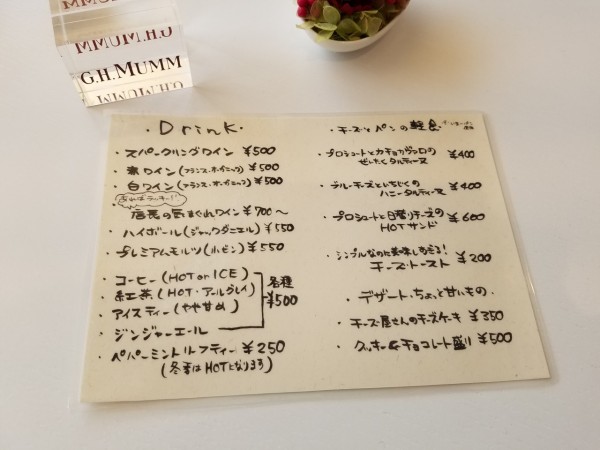 G.H.MUMM
・Drink・
・スパークリングワイン ¥500
・赤ワイン(フランス・オーガニック) ¥500
・白ワイン(フランス・オーガニック) ¥500
あればラッキー!!
・店長の気まぐれワイン ¥700〜
・ハイボール(ジャックダニエル) ¥550
・プレミアムモルツ(小ビン) ¥550
・コーヒー(HOT or ICE)
・紅茶(HOT・アールグレイ)
・アイスティー(やや甘め)
・ジンジャーエール
各種
¥500
・ペパーミントリーフティー ¥250
(冬季はHOTになります)
・チーズとパンの軽食
・プロシュートとカチョカヴァロの
ぜいたくタルティーヌ ¥400
・ブルーチーズといちじくの
ハニータルティーヌ ¥400
・プロシュートと日替りチーズの
HOTサンド ¥600
・シンプルなのに美味しすぎる!
チーズトースト ¥200
・デザート・ちょっと甘いもの・
・チーズ屋さんのチーズケーキ ¥350
・クッキー&チョコレート盛り ¥500